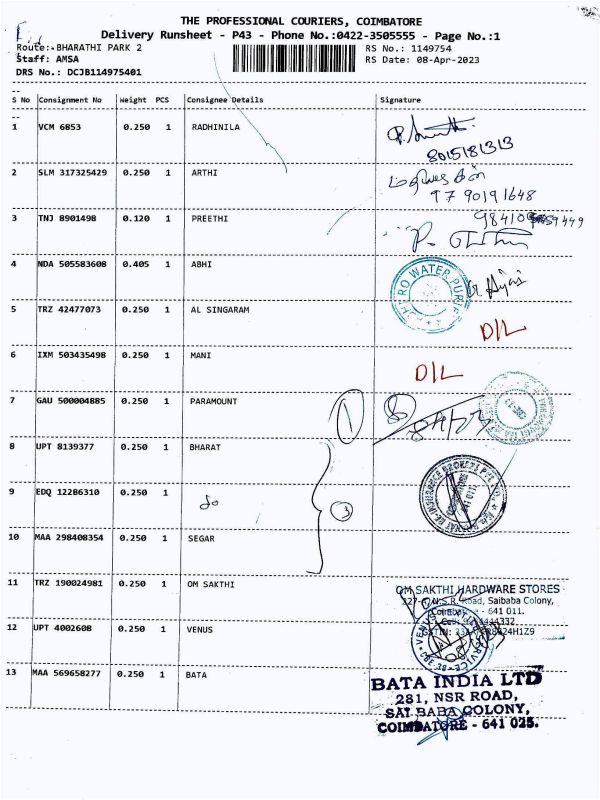 THE PROFESSIONAL COURIERS, COIMBATORE
Delivery Runsheet - P43 - Phone No.:0422-3505555 - Page No.:1
Route: BHARATHI PARK 2 RS No.: 1149754
Staff: AMSA RS Date: 08-Apr-2023
DRS No.: DCJB114975401
S No Consignment No Weight PCS Consignee Details Signature
1 VCM 6853 0.250 1 RADHINILA
8015181313
2 SLM 317325429 0.250 1 ARTHI
9790191648
3 TNJ 8901498 0.120 1 PREETHI
4 NDA 505583608 0.405 1 ABHI
WATER
5 TRZ 42477073 0.250 1 AL SINGARAM
D/L
6 IXM 503435498 0.250 1 MANI
D/L
7 GAU 500004885 0.250 1 PARAMOUNT
1
8 UPT 8139377 0.250 1 BHARAT
INSURANCE BROKERS PVT
9 EDQ 12286310 0.250 1 do
3
10 MAA 298408354 0.250 1 SEGAR
11 TRZ 190024981 0.250 1 OM SAKTHI
OM SAKTHI HARDWARE STORES
N.S.R. Road, Saibaba Colony,
- 641 011.
12 UPT 4002608 0.250 1 VENUS
VENUS
13 MAA 569658277 0.250 1 BATA
BATA INDIA LTD
281, NSR ROAD,
SAI BABA COLONY,
COIMBATORE - 641 025.